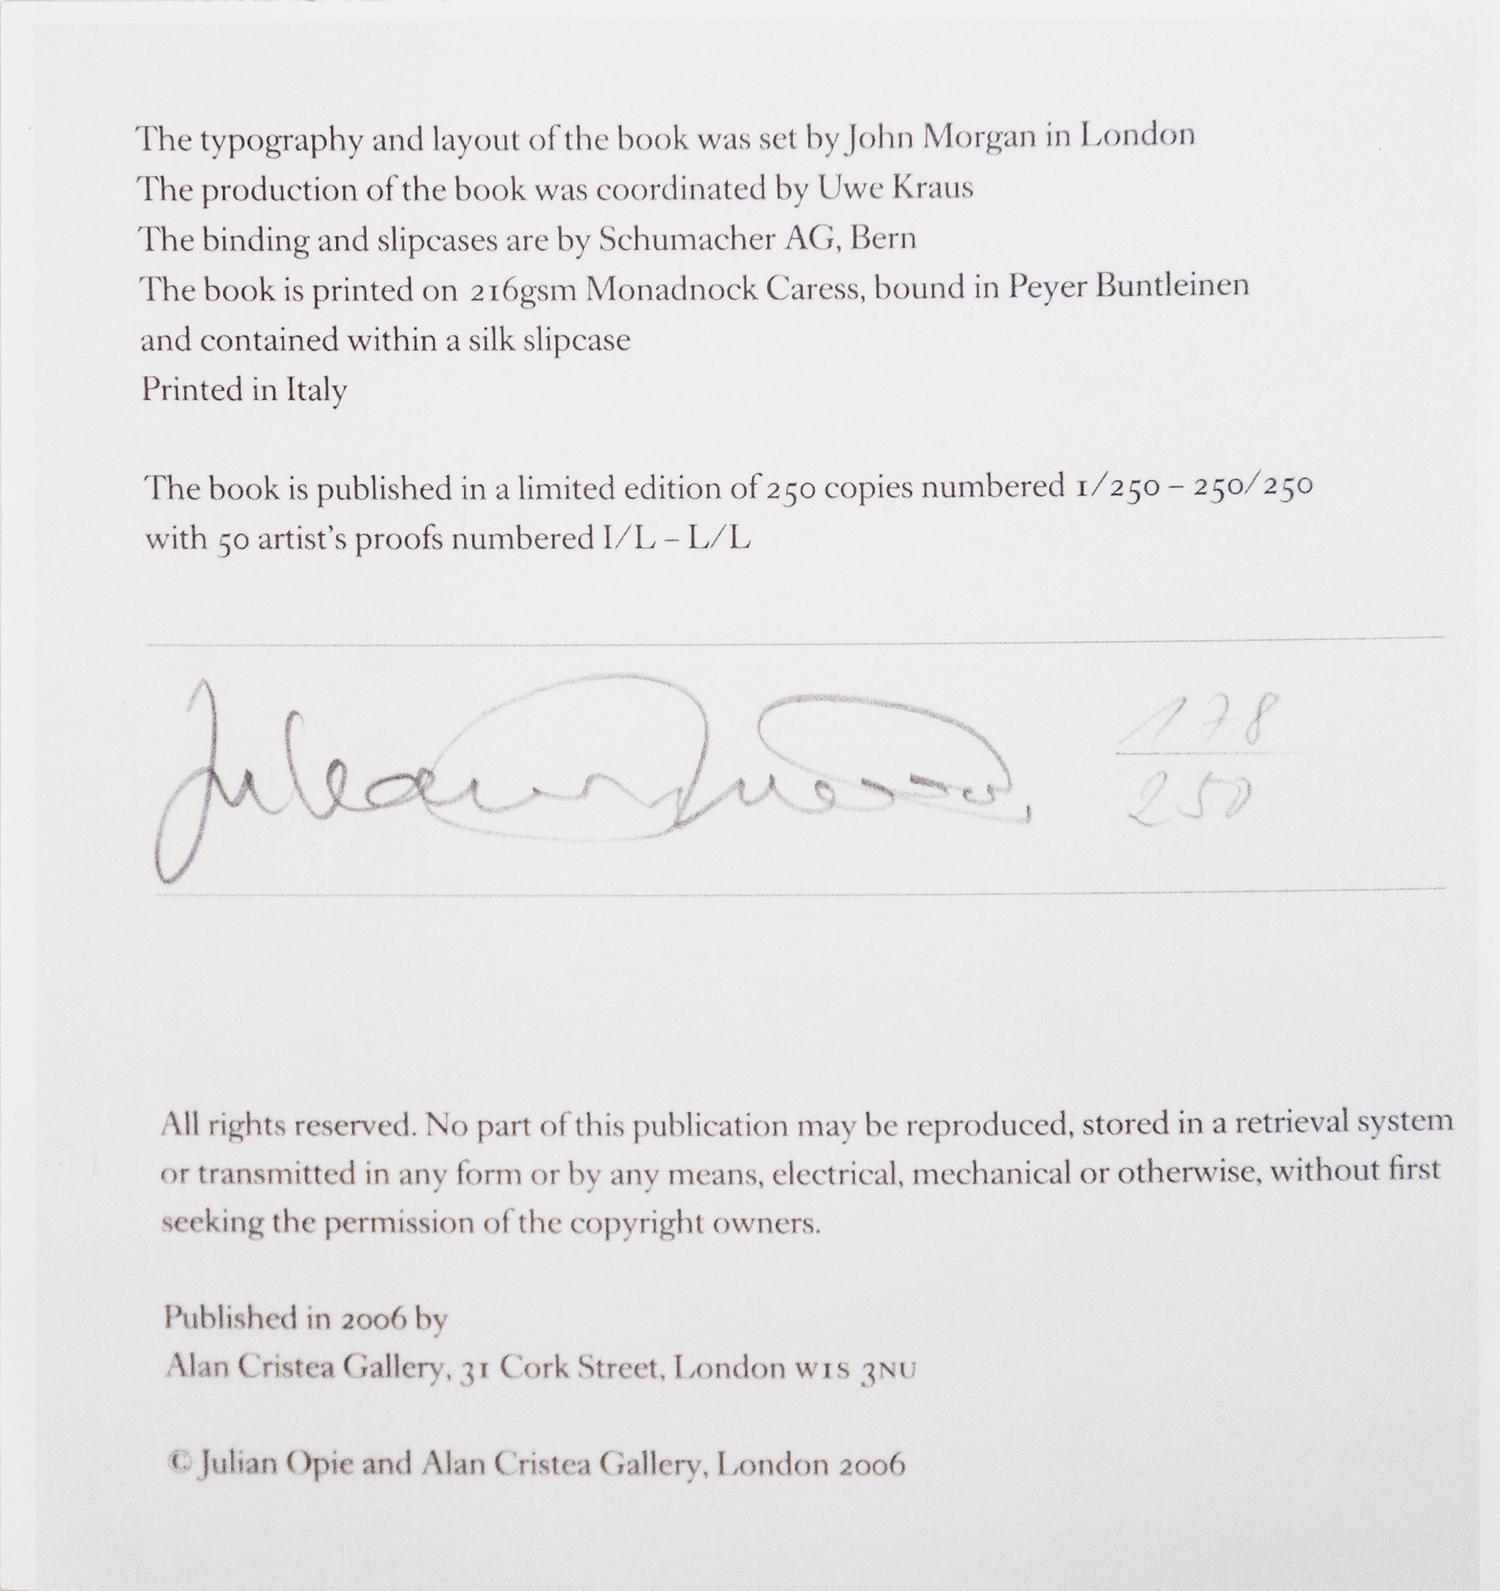 The typography and layout of the book was set by John Morgan in London
The production of the book was coordinated by Uwe Kraus
The binding and slipcases are by Schumacher AG, Bern
The book is printed on 216gsm Monadnock Caress, bound in Peyer Buntleinen
and contained within a silk slipcase
Printed in Italy
The book is published in a limited edition of 250 copies numbered 1/250 – 250/250
with 50 artist's proofs numbered I/L – L/L
Julian
178
250
All rights reserved. No part of this publication may be reproduced, stored in a retrieval system
or transmitted in any form or by any means, electrical, mechanical or otherwise, without first
seeking the permission of the copyright owners.
Published in 2006 by
Alan Cristea Gallery, 31 Cork Street, London W1S 3NU
© Julian Opie and Alan Cristea Gallery, London 2006